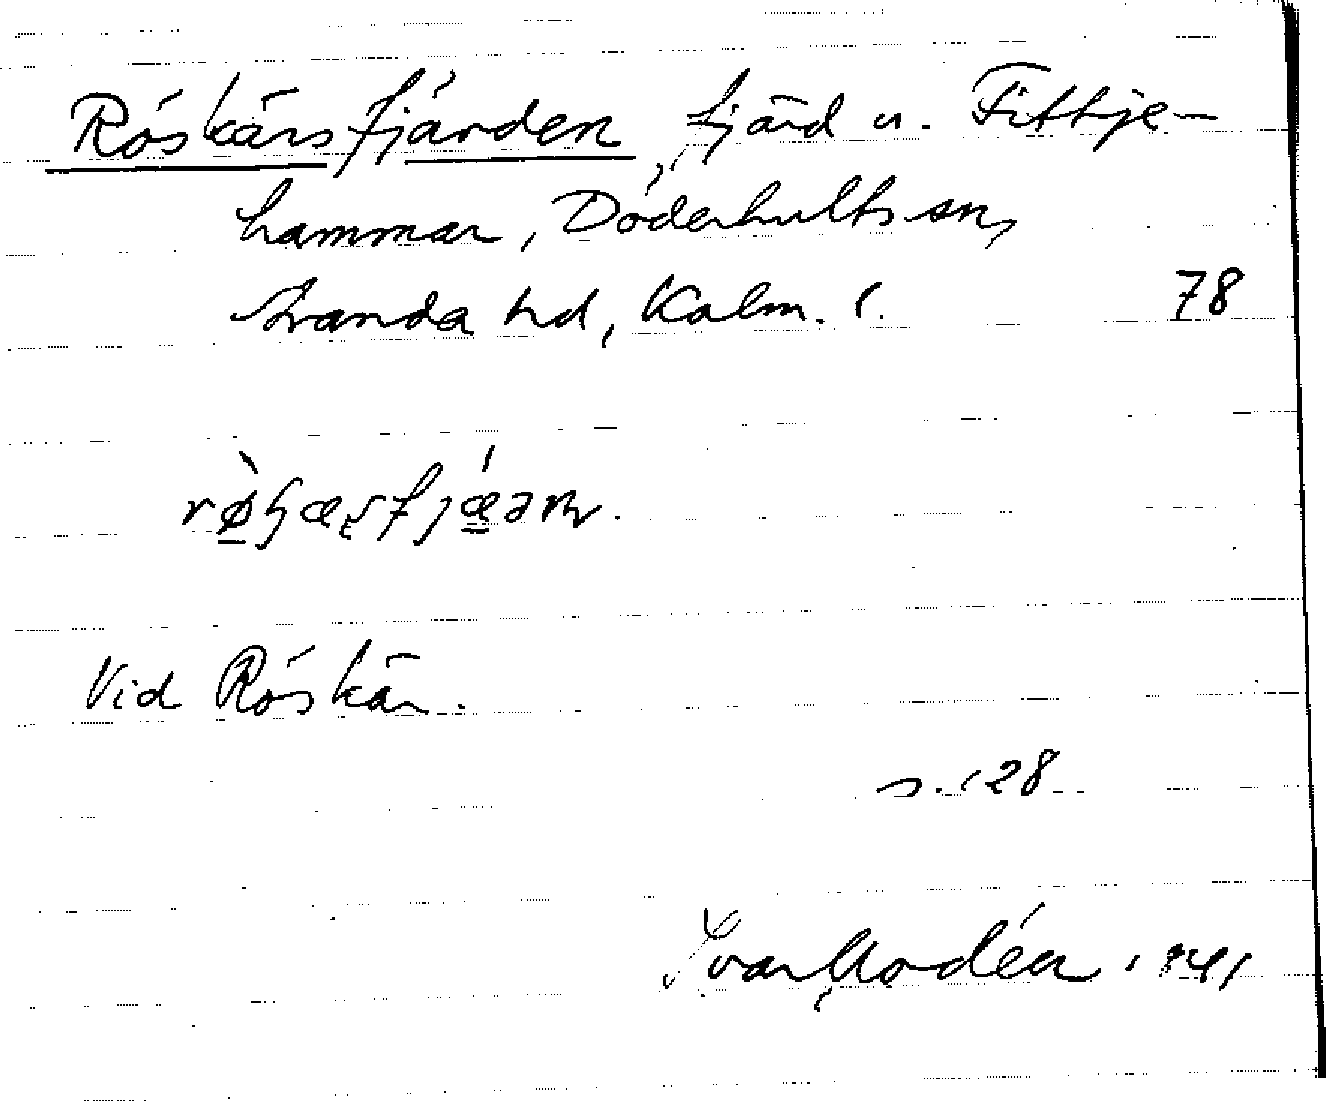 Röskärsfjärden, fjärd u. Fittje-
hammar, Döderhults sn,
Stranda hd, Kalm. l. 78
Vid Röskär.
s. 128
Ivar Modéer. 1941